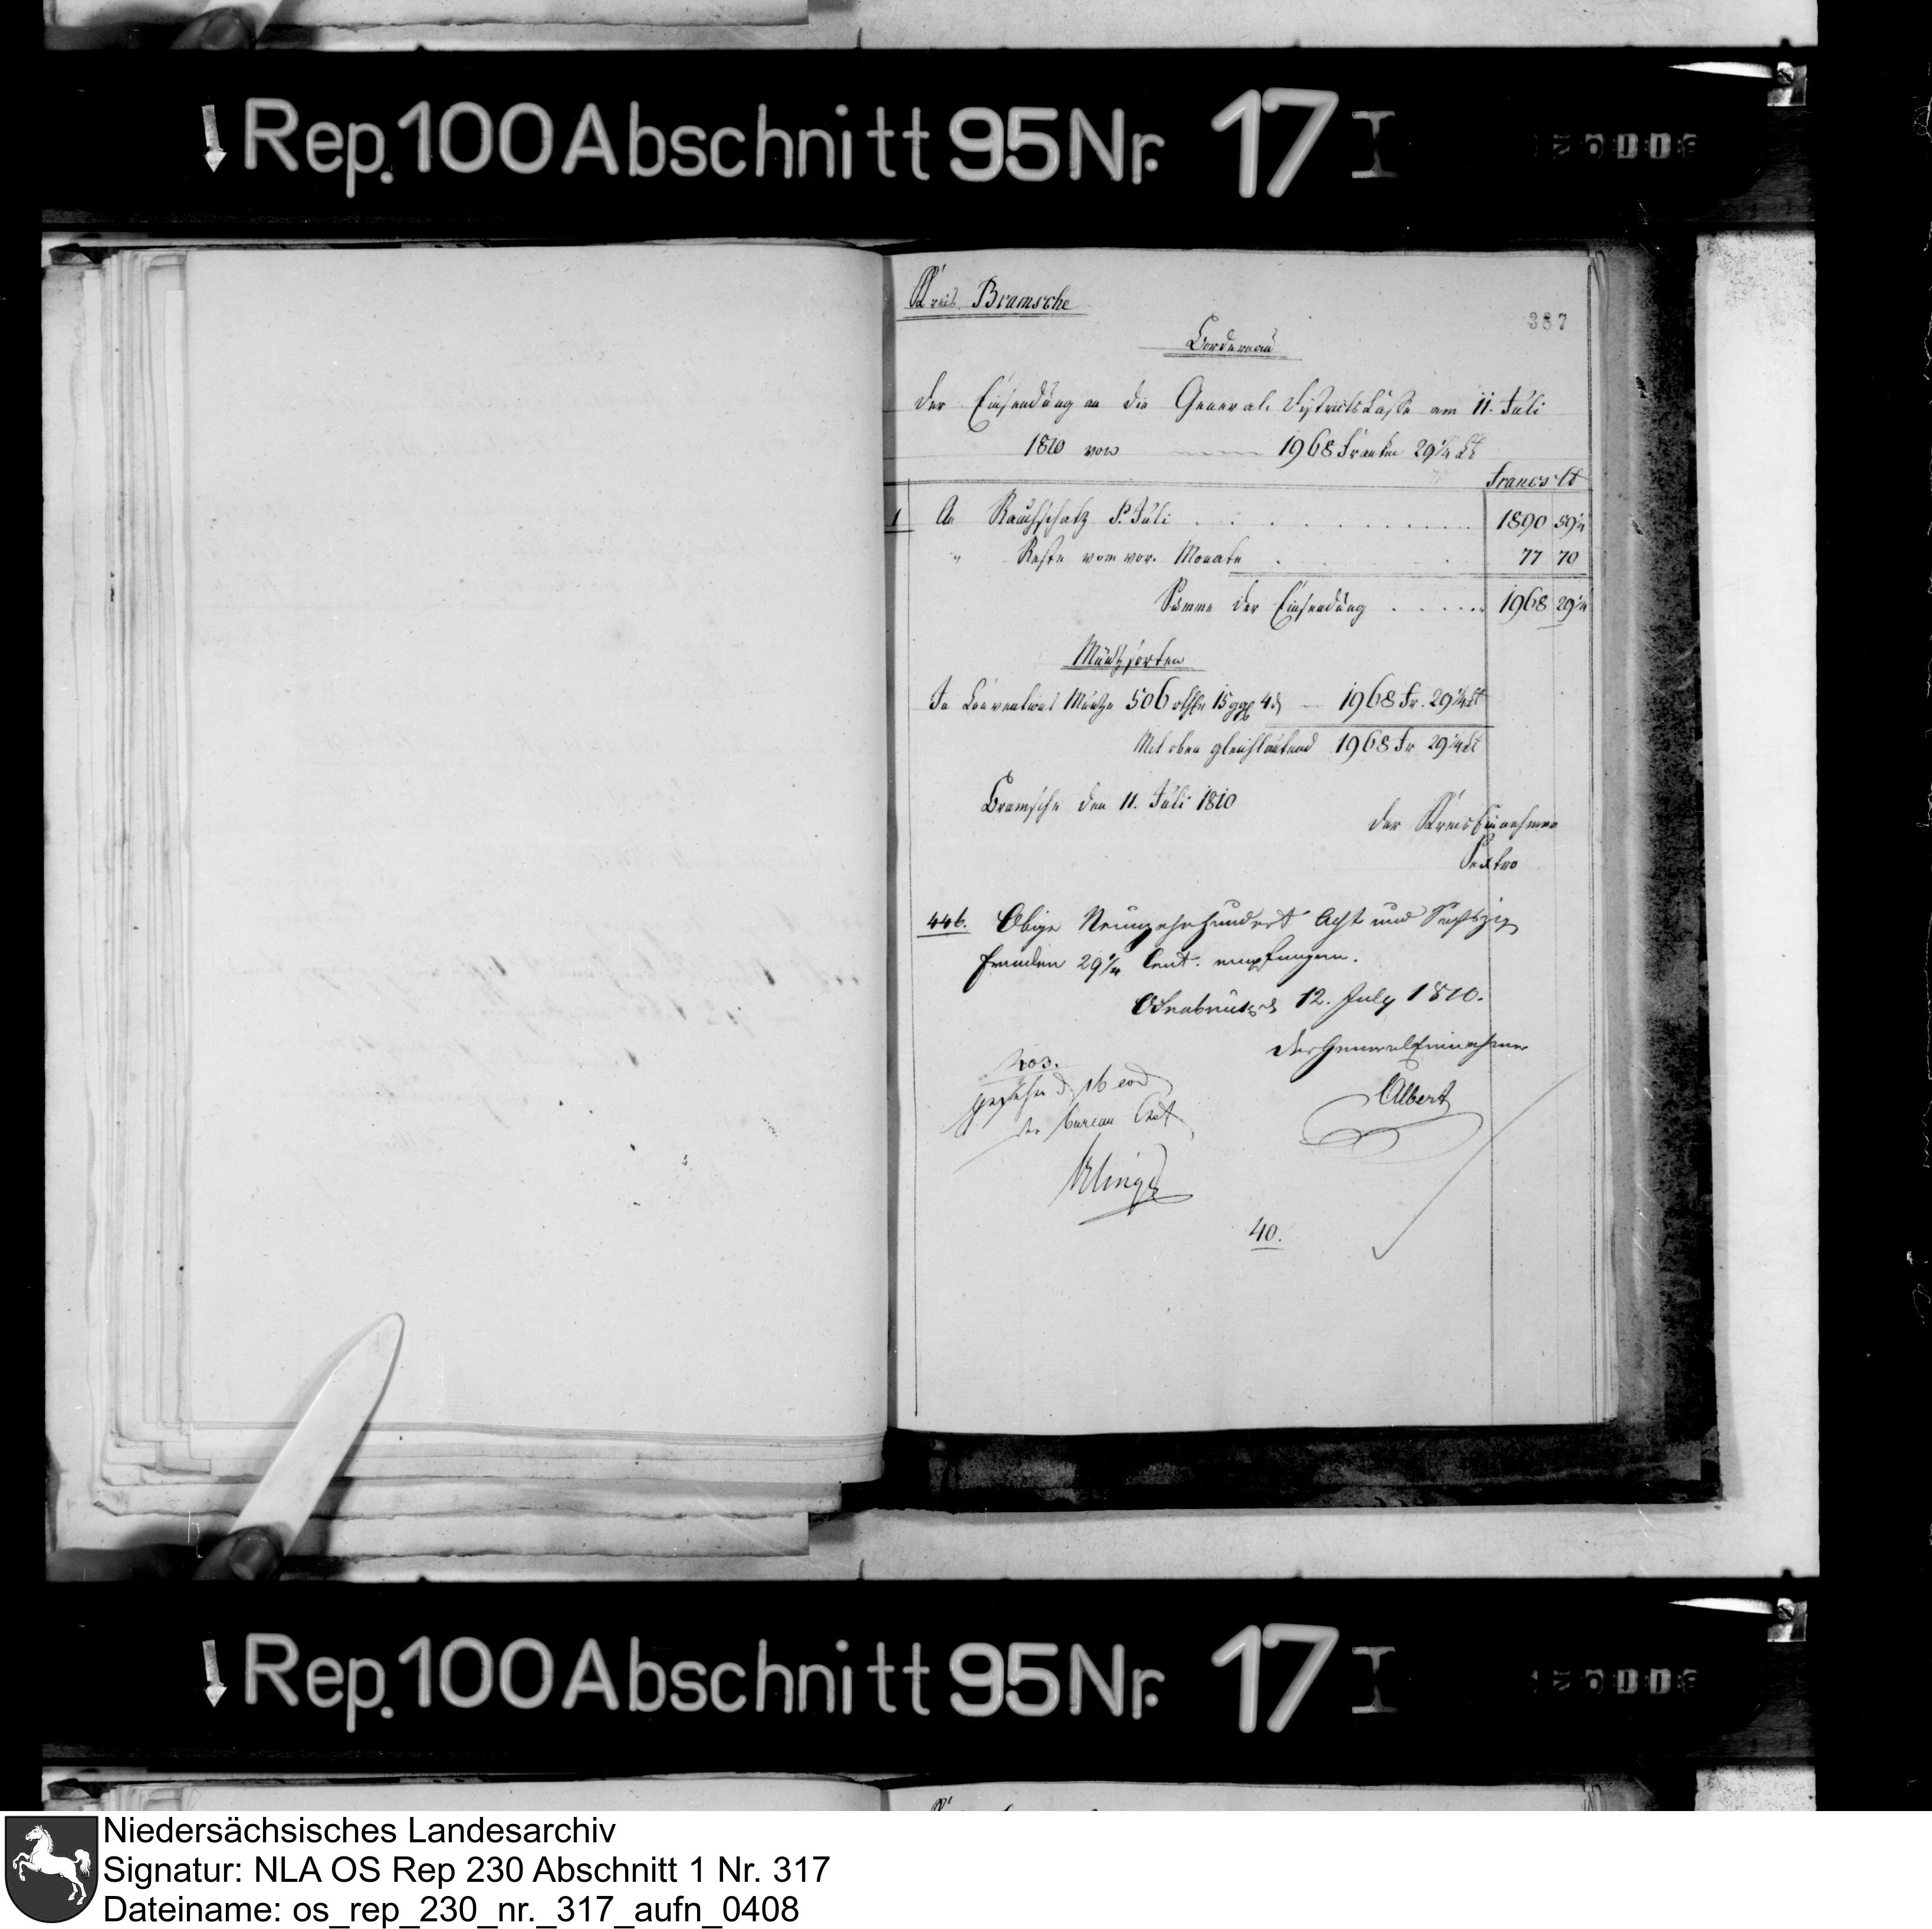 Rep. 100 Abschnitt 95 Nr. 17 I
Kreis Bramsche
387
Bordereau
der Einsendung an die General-Districts Casse am 11. Juli
1810 von 1968 Franken 29 1/4 Ct
Francs Ct
1 An Rauchschatz P. Juli 1890 59 1/4
" Reste vom vor. Monate 77 70
Summe der Einsendung 1968 29 1/4
Müntzsorten
In Conventions Müntze 506 rthlr 15 ggl 4 d — 1968 Fr. 29 1/4 Ct
Mit oben gleichlautend 1968 Fr 29 1/4 Ct
Bramsche den 11. Juli 1810
Der Kreis Einnehmer
Sextro
446. Obige Neunzehnhundert Acht und Sechszig
Franken 29 1/4 Cent. empfangen.
Osnabrück d 12. July 1810.
Der General Einnehmer
Albert
203.
gesehen d. 16 eod
der Bureau Chef
40.
Rep. 100 Abschnitt 95 Nr. 17 I
Niedersächsisches Landesarchiv
Signatur: NLA OS Rep 230 Abschnitt 1 Nr. 317
Dateiname: os_rep_230_nr._317_aufn_0408